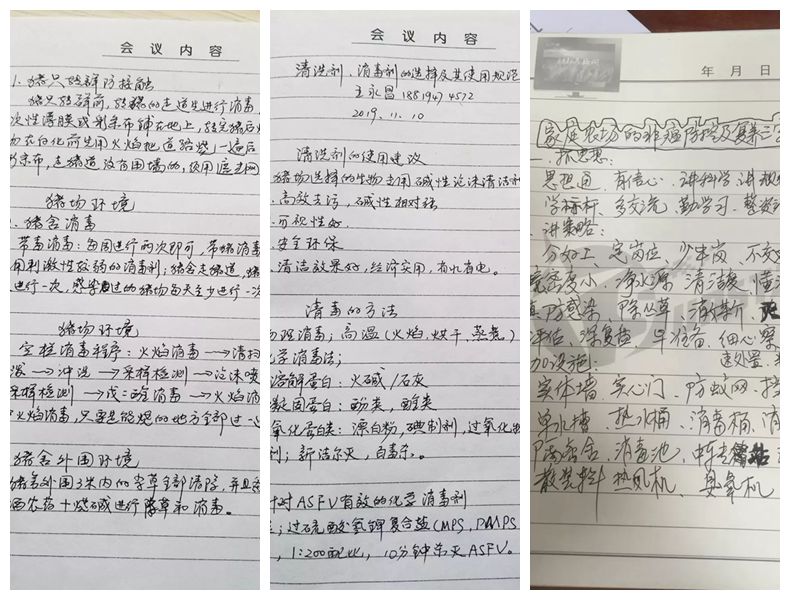 会议内容
1. 猪只转群防接触
猪只转群前,转猪的走道先进行消毒,
次性薄膜或彩条布铺在地上,转完猪后
白化前先用火焰把道路烧一遍后
条布,走猪道没有围墙的,使用遮光网
猪场环境
猪舍消毒
带毒消毒:每周进行两次即可,带猪消毒
用刺激性较弱的消毒剂;猪舍走猪道,
进行一次,感染过的猪场每天至少进行一次
猪场环境
空栏消毒程序:火焰消毒→清扫
泼→冲洗→采样检测→泡沫喷
采样检测→戊二醛消毒→火焰消
火焰消毒,只要是能烧的地方全部过一遍
猪舍外围环境
猪舍外围3米内的杂草全部清除,并且
洒农药+烧碱进行除草和消毒。
会议内容
清洗剂、消毒剂的选择及其使用规范
王永昌 18819474572
2019.11.10
清洗剂的使用建议
猪场选择的生物专用碱性泡沫清洁剂
高效去污,碱性相对强
可视性好
安全环保
清洁效果好,经济实用,省水省电。
消毒的方法
物理消毒;高温(火焰、烘干、蒸煮)
化学消毒法;
溶解蛋白:火碱/石灰
凝固蛋白:酚类,醛类
氧化蛋白类:漂白粉,碘制剂,过氧化
剂;新洁尔灭,百毒杀。
针对ASFV有效的化学消毒剂
过硫酸氢钾复合盐(MPS、PMPS
,1:200配比,10分钟杀灭ASFV。
年 月 日
家庭农场的非瘟防控及复养三
一.抓思想:
思想通、有信心、讲科学、讲规
学标杆、多交流、勤学习、
讲策略:
分好工、定岗位、少串岗、不交
密度小、净水源、清洁、懂
防感染、除丛草、
评估、深复盘、早准备、细心察
速处置
加设施:
实体墙、实心门、防蚊网、挡
单水槽、热水桶、消毒桶、消
隔离舍、消毒池、中转站
散装料、热风机、臭氧机